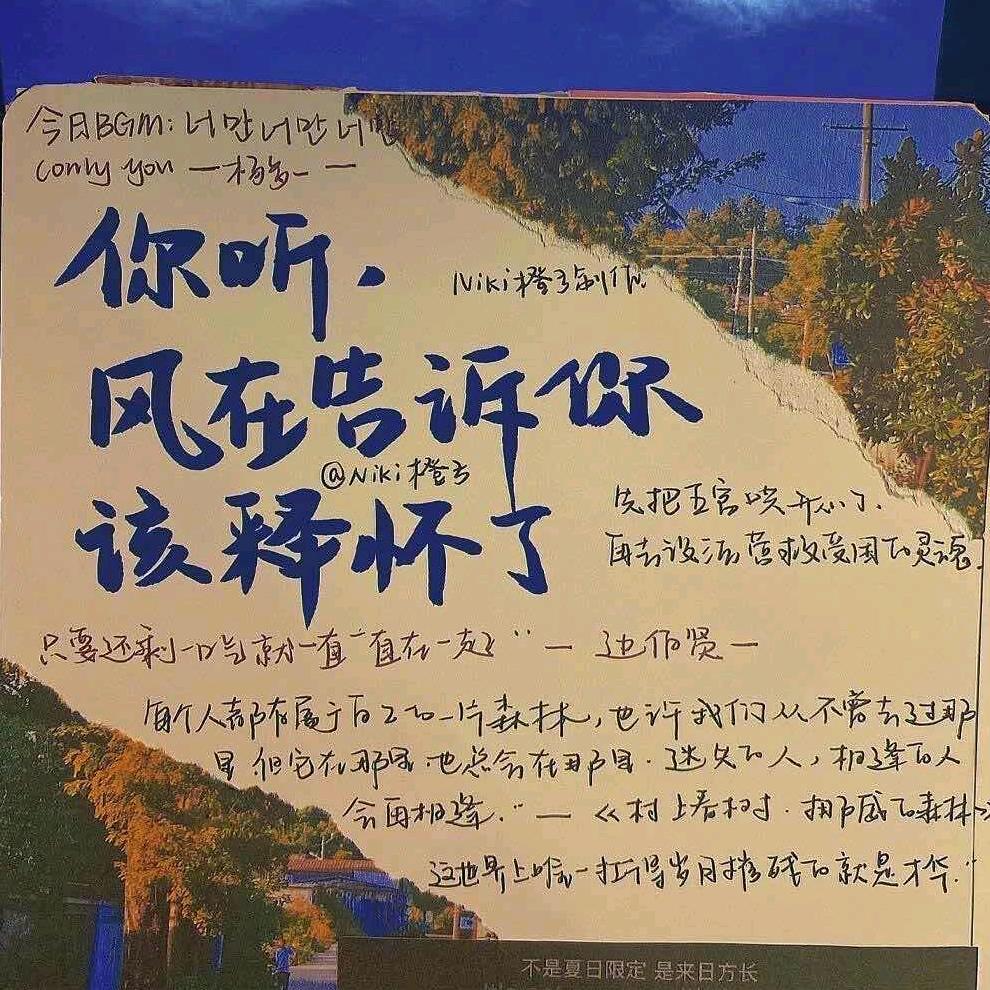 今日BGM: 너만너만너만
(only you — 杨多一 —
你听，
Niki橙子制作
风在告诉你
@Niki橙子
该释怀了
先把五官哄开心了，
再去设法营救受困的灵魂
只要还剩一口气就一直“直在一起” — 边伯贤 —
每个人都有属于自己的一片森林，也许我们从不曾去过那
里 但它在那里 也总会在那里．迷失的人，相逢的人
会再相逢．” — 《村上春树．挪威的森林》
这世界上唯一扛得岁月摧残的就是才华．”
不是夏日限定 是来日方长